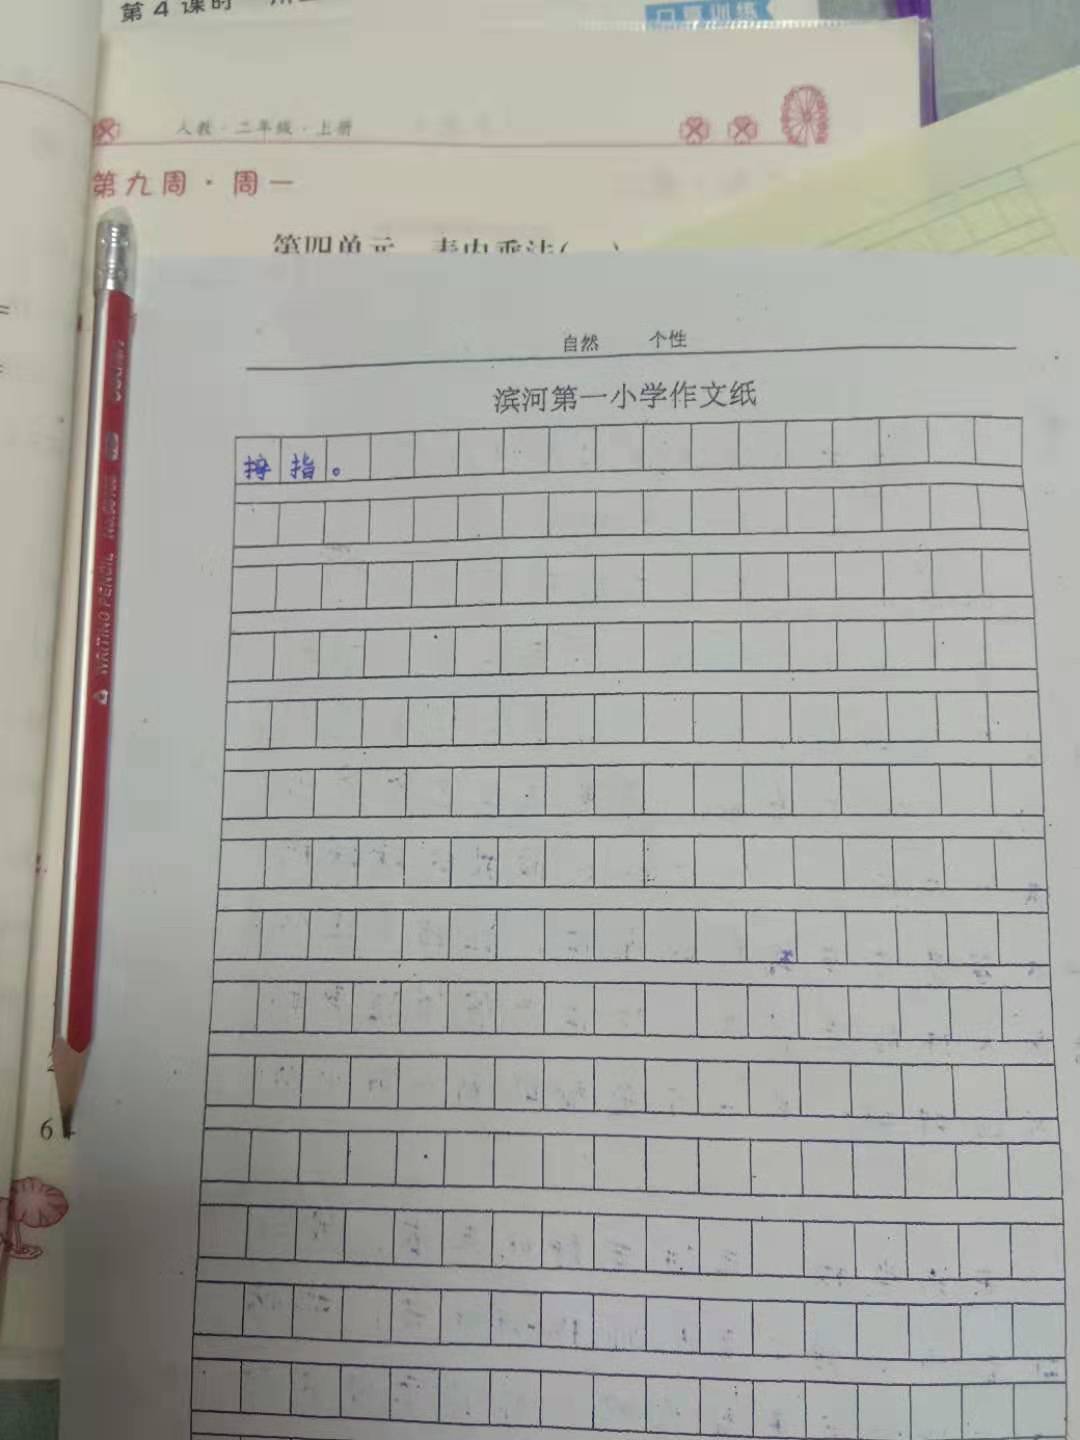 第4课时
口算训练
人教·二年级·上册
第九周·周一
第四单元 表内乘法(一)
自然 个性
滨河第一小学作文纸
指。
WRITING PENCIL
6